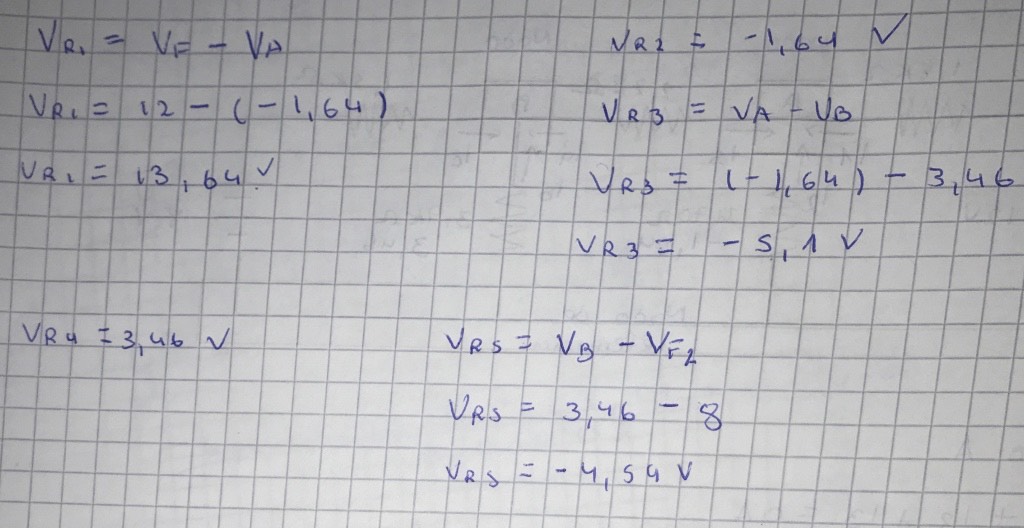 VR1 = VF - VA
VR1 = 12 - (-1,64)
VR1 = 13,64 V
VR2 = -1,64 V
VR3 = VA - VB
VR3 = (-1,64) - 3,46
VR3 = -5,1 V
VR4 = 3,46 V
VR5 = VB - VF2
VR5 = 3,46 - 8
VR5 = -4,54 V